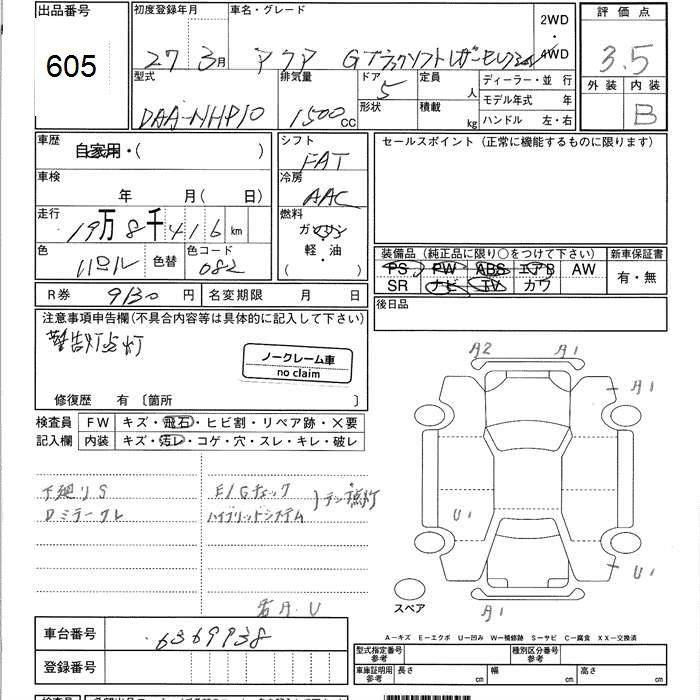 出品番号 初度登録年月 車名・グレード 2WD ・ 4WD 評価点
605 27年 3月 アクア Gブラックソフトレザーセレクション 3.5
型式 排気量 ドア 定員 ディーラー・並行 外装 内装
DAA-NHP10 1500cc 5 人 モデル年式 年 B
形状 積載 kg ハンドル 左・右
車歴 自家用・( ) シフト FAT セールスポイント(正常に機能するものに限ります)
車検 年 月(日) 冷房 AAC
走行 19万8千416km 燃料 ガソリン 軽・油 ( )
色 パール 色替 色コード 082 装備品(純正品に限り○をつけて下さい) 新車保証書
PS PW ABS エアB AW 有・無
SR ナビ TV カワ
R券 9130円 名変期限 月 日 後日品
注意事項申告欄(不具合内容等は具体的に記入して下さい)
警告灯点灯
ノークレーム車
no claim
修復歴 有〔箇所 〕
検査員 FW キズ・飛石・ヒビ割・リペア跡・×要
記入欄 内装 キズ・汚レ・コゲ・穴・スレ・キレ・破レ
A2 A1
A1
下廻りS E/Gチェック
Dミラークレ ハイブリッドシステム )ランプ点灯
U1
U1
若干.U
A1
スペア
車台番号 6369938
A−キズ E−エクボ U−凹み W−補修跡 S−サビ C−腐食 XX−交換済
登録番号 型式指定番号 参考 種別区分番号 参考
車庫証明用 参考 長さ cm 幅 cm 高さ cm